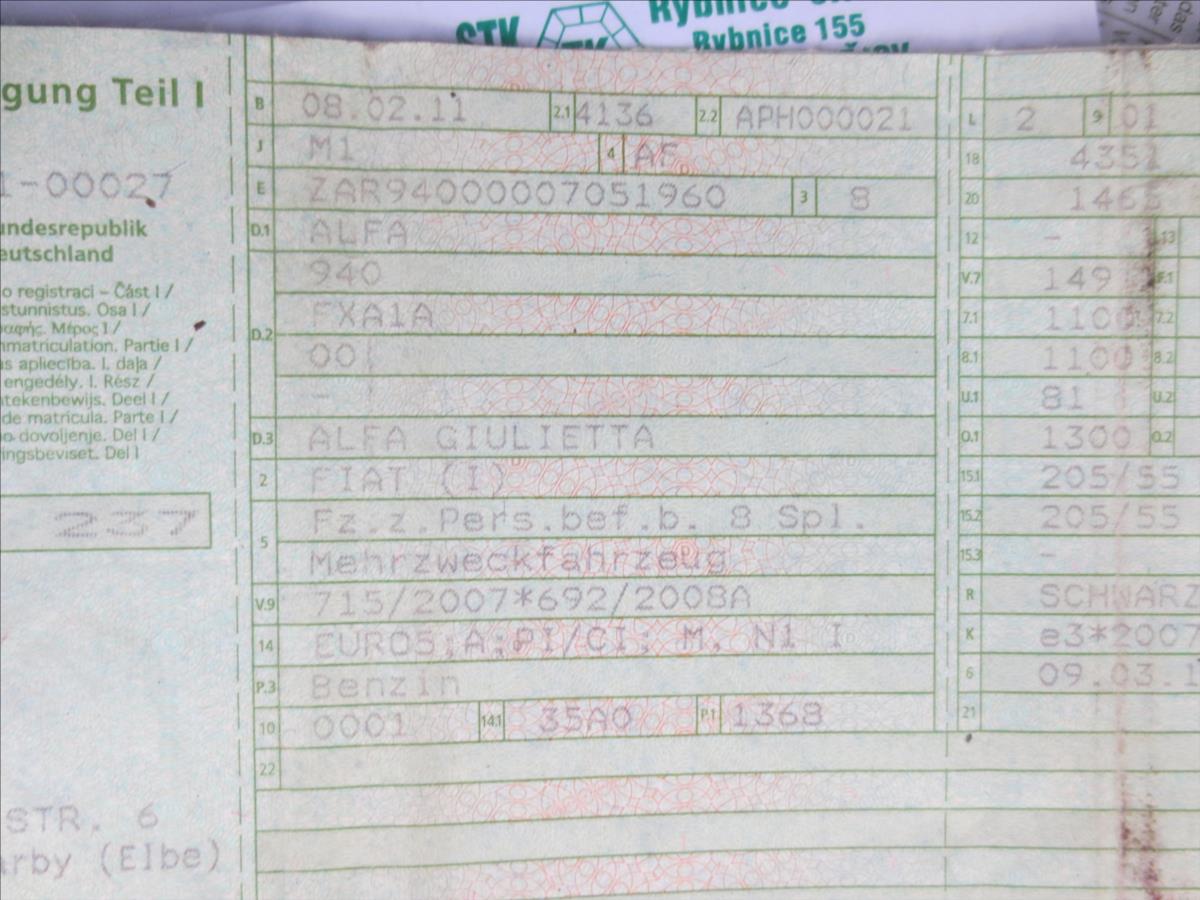 STK
Rybnice 155
gung Teil I
1-00027
undesrepublik
eutschland
o registraci – Část I /
stunnistus. Osa I /
Μέρος I /
nmatriculation. Partie I /
as apliecība. I. daļa /
engedély. I. Rész /
ntekenbewijs. Deel I /
de matrícula. Parte I /
o dovoljenje. Del I /
ingsbeviset. Del I
237
STR. 6
arby (Elbe)
B 08.02.11 2.1 4136 2.2 APH000021
J M1 4 AF
E ZAR94000007051960 3 8
D.1 ALFA
940
D.2 FXA1A
00
-
D.3 ALFA GIULIETTA
2 FIAT (I)
5 Fz.z.Pers.bef.b. 8 Spl.
Mehrzweckfahrzeug
V.9 715/2007*692/2008A
14 EURO5;A;PI/CI; M, N1 I
P.3 Benzin
10 0001 14.1 35A0 P.1 1368
22
L 2 9 01
18 4351
20 146
12 - 13
V.7 149
7.1 1100 7.2
8.1 1100 8.2
U.1 81 U.2
O.1 1300 O.2
15.1 205/55
15.2 205/55
15.3 -
R SCHWARZ
K e3*2007
6 09.03.1
21